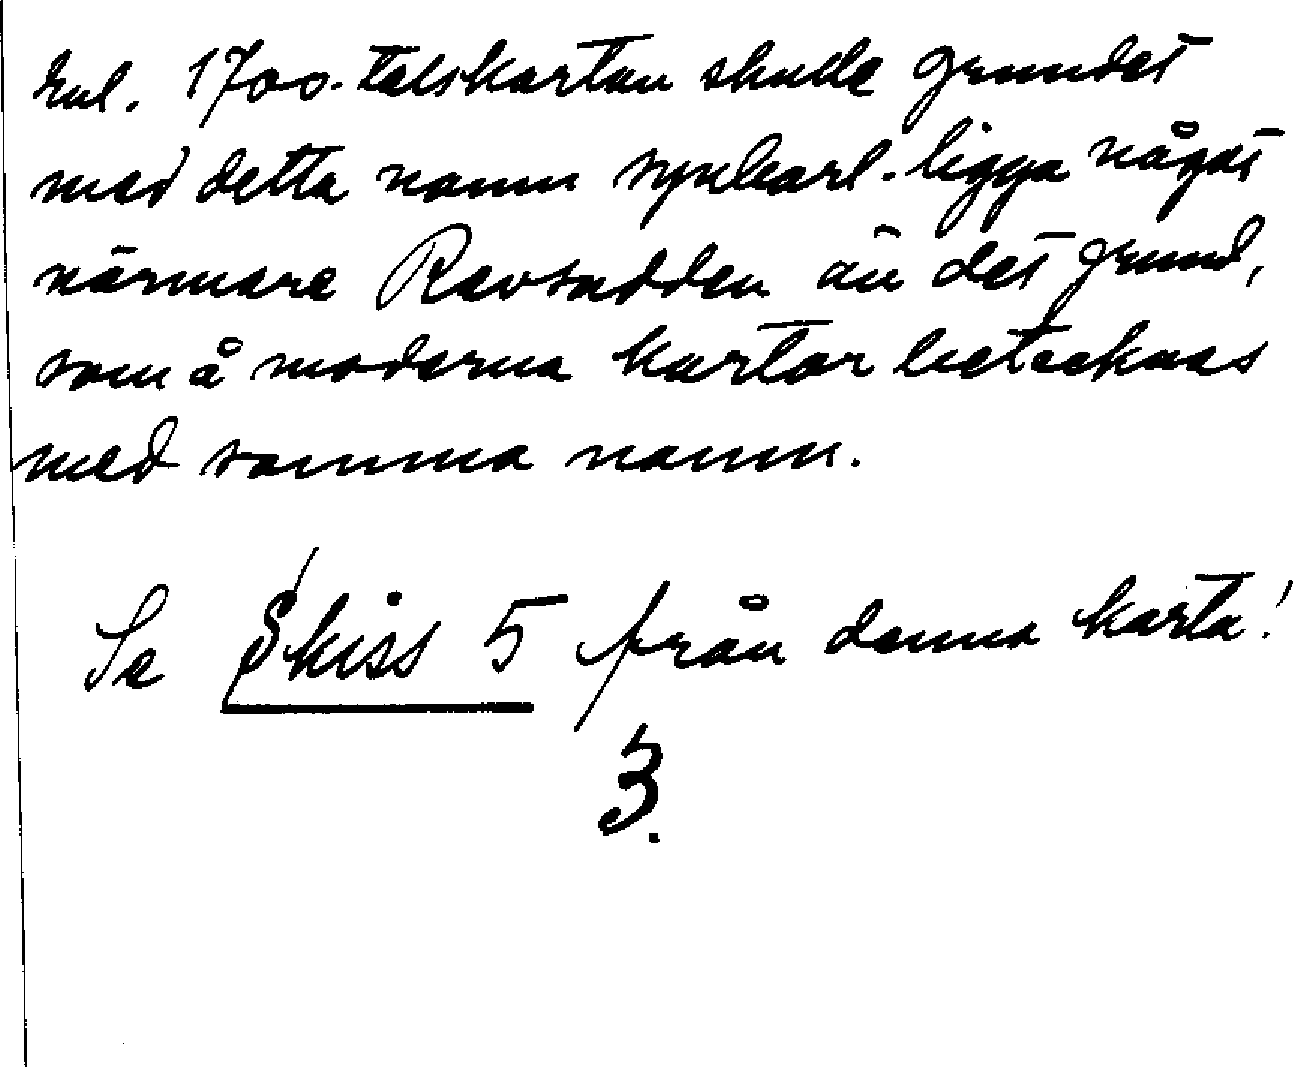 Enl. 1700-talskartan skulle grundet
med detta namn synbarl. ligga något
närmare Revsudden än det grund,
som å moderna kartor betecknas
med samma namn.
Se Skiss 5 från denna karta!
3.